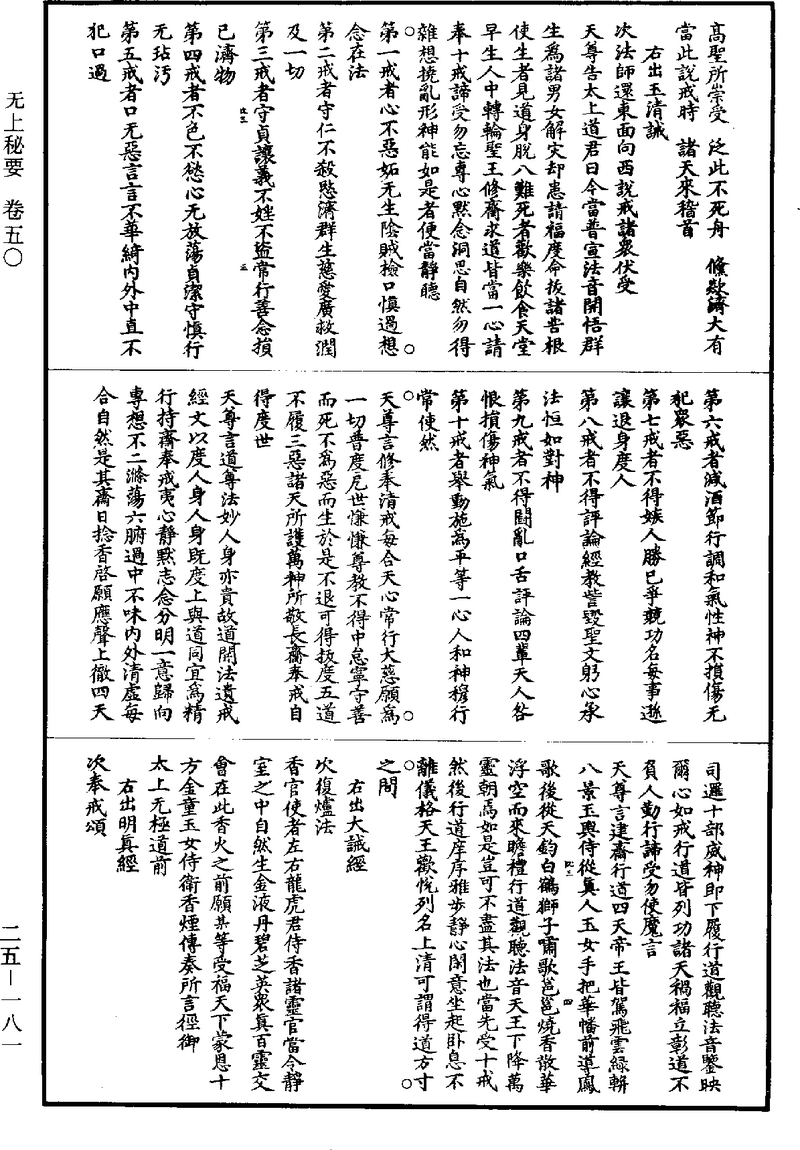 高聖所崇受　泛此不死舟　儵歘濟大有
當此說戒時　諸天來稽首
右出玉清誡
次法師還東面向西說戒諸衆伏受
天尊告太上道君曰今當普宣法音開悟群
生爲諸男女解灾却患請福度命拔諸苦根
使生者見道身脫八難死者歡樂飲食天堂
早生人中轉輪聖王修齋求道皆當一心請
奉十戒諦受勿忘專心默念洞思自然勿得
雜想撓亂形神能如是者便當靜聽
第一戒者心不惡妬无生陰賊檢口慎過想
念在法
第二戒者守仁不殺愍濟群生慈愛廣救潤
及一切
第三戒者守貞讓義不婬不盜常行善念損
己濟物
第四戒者不色不慾心无放蕩貞潔守慎行
无玷污
第五戒者口无惡言言不華綺內外中直不
犯口過
第六戒者減酒節行調和氣性神不損傷无
犯衆惡
第七戒者不得嫉人勝己爭競功名每事遜
讓退身度人
第八戒者不得評論經教訾毀聖文躬心承
法恒如對神
第九戒者不得鬪亂口舌評論四輩天人咎
恨損傷神氣
第十戒者舉動施爲平等一心人和神穆行
常使然
天尊言修奉清戒每合天心常行大慈願爲
一切普度厄世慊慊尊教不得中怠寧守善
而死不爲惡而生於是不退可得拔度五道
不履三惡諸天所護萬神所敬長齋奉戒自
得度世
天尊言道尊法妙人身亦貴故道開法遺戒
經文以度人身人身既度上與道同宜爲精
行持齋奉戒夷心靜默志念分明一意歸向
專想不二滌蕩六腑過中不味內外清虛每
合自然是其齋日捻香啓願應聲上徹四天
司邏十部威神即下履行道觀聽法音鑒映
爾心如戒行道皆列功諸天禍福立彰道不
負人勤行諦受勿使魔言
天尊言建齋行道四天帝王皆駕飛雲緑軿
八景玉輿侍從眞人玉女手把華幡前導鳳
歌後從天鈞白鶴獅子嘯歌邕邕燒香散華
浮空而來瞻禮行道觀聽法音天王下降萬
靈朝焉如是豈可不盡其法也當先受十戒
然後行道庠序雅步靜心閑意坐起卧息不
離儀格天王歡悅列名上清可謂得道方寸
之間
右出大誡經
次復爐法
香官使者左右龍虎君侍香諸靈官當令靜
室之中自然生金液丹碧芝英衆眞百靈交
會在此香火之前願某等受福天下蒙恩十
方金童玉女侍衛香煙傳奏所言徑御
太上无極道前
右出明眞經
次奉戒頌
无上秘要　卷五〇
二五—一八一